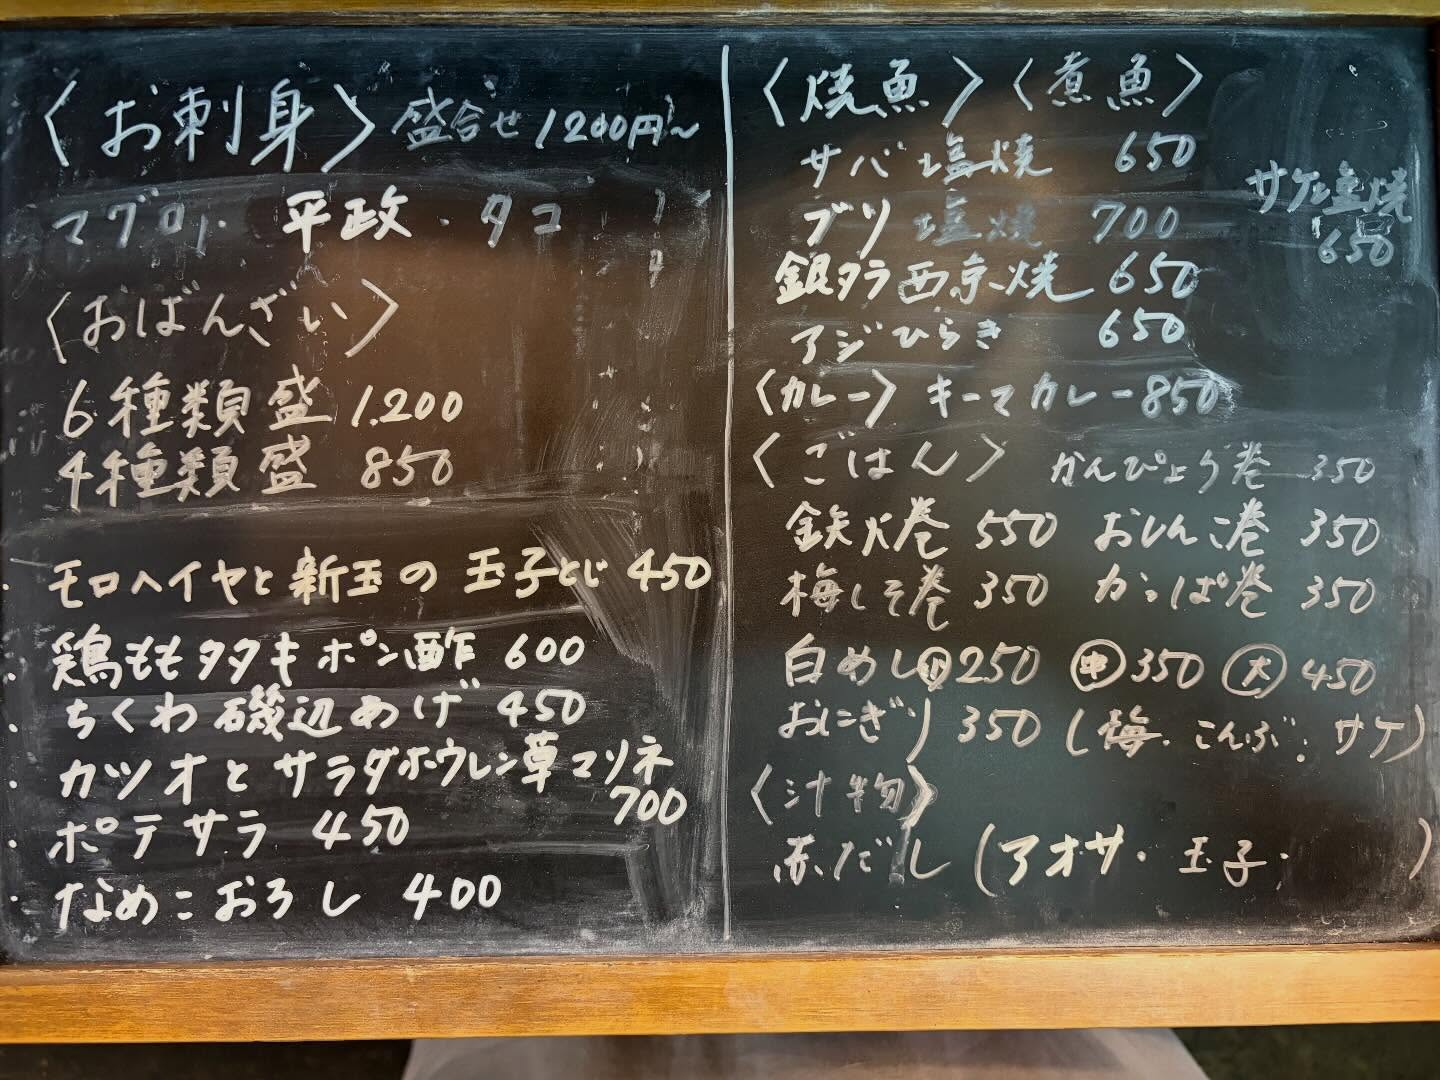 〈お刺身〉盛合せ 1200円〜
マグロ・平政・タコ
〈おばんざい〉
6種類盛 1.200
4種類盛 850
・モロヘイヤと新玉の玉子とじ 450
・鶏ももタタキポン酢 600
・ちくわ磯辺あげ 450
・カツオとサラダホウレン草マリネ
700
・ポテサラ 450
・なめこおろし 400
〈焼魚〉〈煮魚〉
サバ塩焼 650
サケ塩焼
650
ブリ塩焼 700
銀タラ西京焼 650
アジひらき 650
〈カレー〉キーマカレー 850
〈ごはん〉 かんぴょう巻 350
鉄火巻 550 おしんこ巻 350
梅しそ巻 350 カッパ巻 350
白めし㊙小 250 ㊥350 大 450
おにぎり 350 (梅、こんぶ、サケ)
〈汁物〉
赤だし (アオサ・玉子・ )